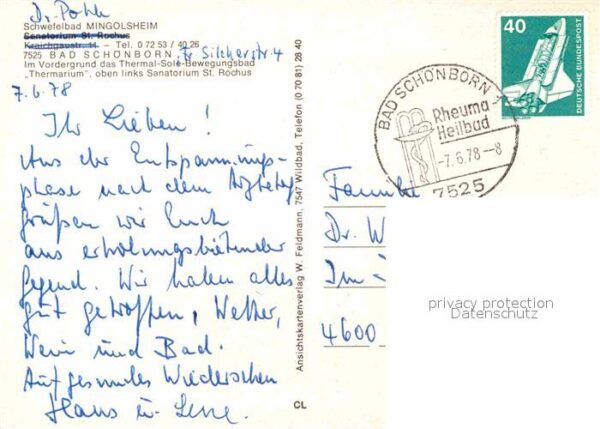 Dr. Pohle
Schwefelbad MINGOLSHEIM
Sanatorium St. Rochus
Kraichgaustr. 14 – Tel. 0 72 53 / 40 26
7525 BAD SCHÖNBORN, Fr. Silcherstr. 4
Im Vordergrund das Thermal-Sole-Bewegungsbad
„Thermarium", oben links Sanatorium St. Rochus
7.6.78
Ihr Lieben!
Aus der Entspannungs-
phase nach dem
grüßen wir Euch
aus erholungsbietender
Gegend. Wir haben alles
gut getroffen, Wetter,
Wein und Bad.
Auf gesundes Wiedersehen
Hans u.
Ansichtskartenverlag W. Feldmann, 7547 Wildbad, Telefon (0 70 81) 28 40
CL
40
DEUTSCHE BUNDESPOST
BAD SCHÖNBORN 1
Rheuma
Heilbad
-7.6.78-8
7525
Familie
Dr. W
Im
4600
privacy protection
Datenschutz